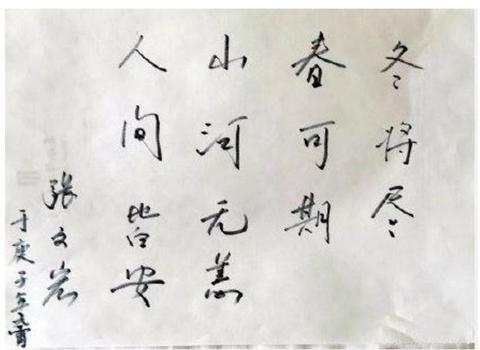 冬将尽
春可期
山河无恙
人间皆安
张文岩
于庚子